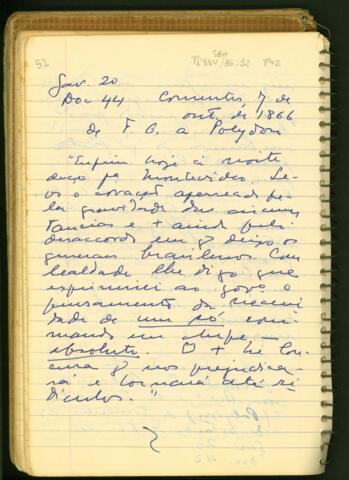 52
SBH
Pi 884 / 36:52 P42
Gav. 20
Doc 44 Corrientes, 7 de
out. de 1866
de F. O. a Polydoro
"Enfim hoje à noite
desço pa Montevideo. Le-
vo o coração apertado pe-
la gravidade das circuns
tancias e + ainda pelo
desaccordo em q deixo os
generaes brasileiros. Com
lealdade lhe digo que
exprimirei ao govº o
pensamento da necessi
dade de um só com-
mando em chefe —
absoluto. O + he lou-
cura q nos prejudica-
rá e tornará até ri
diculos."